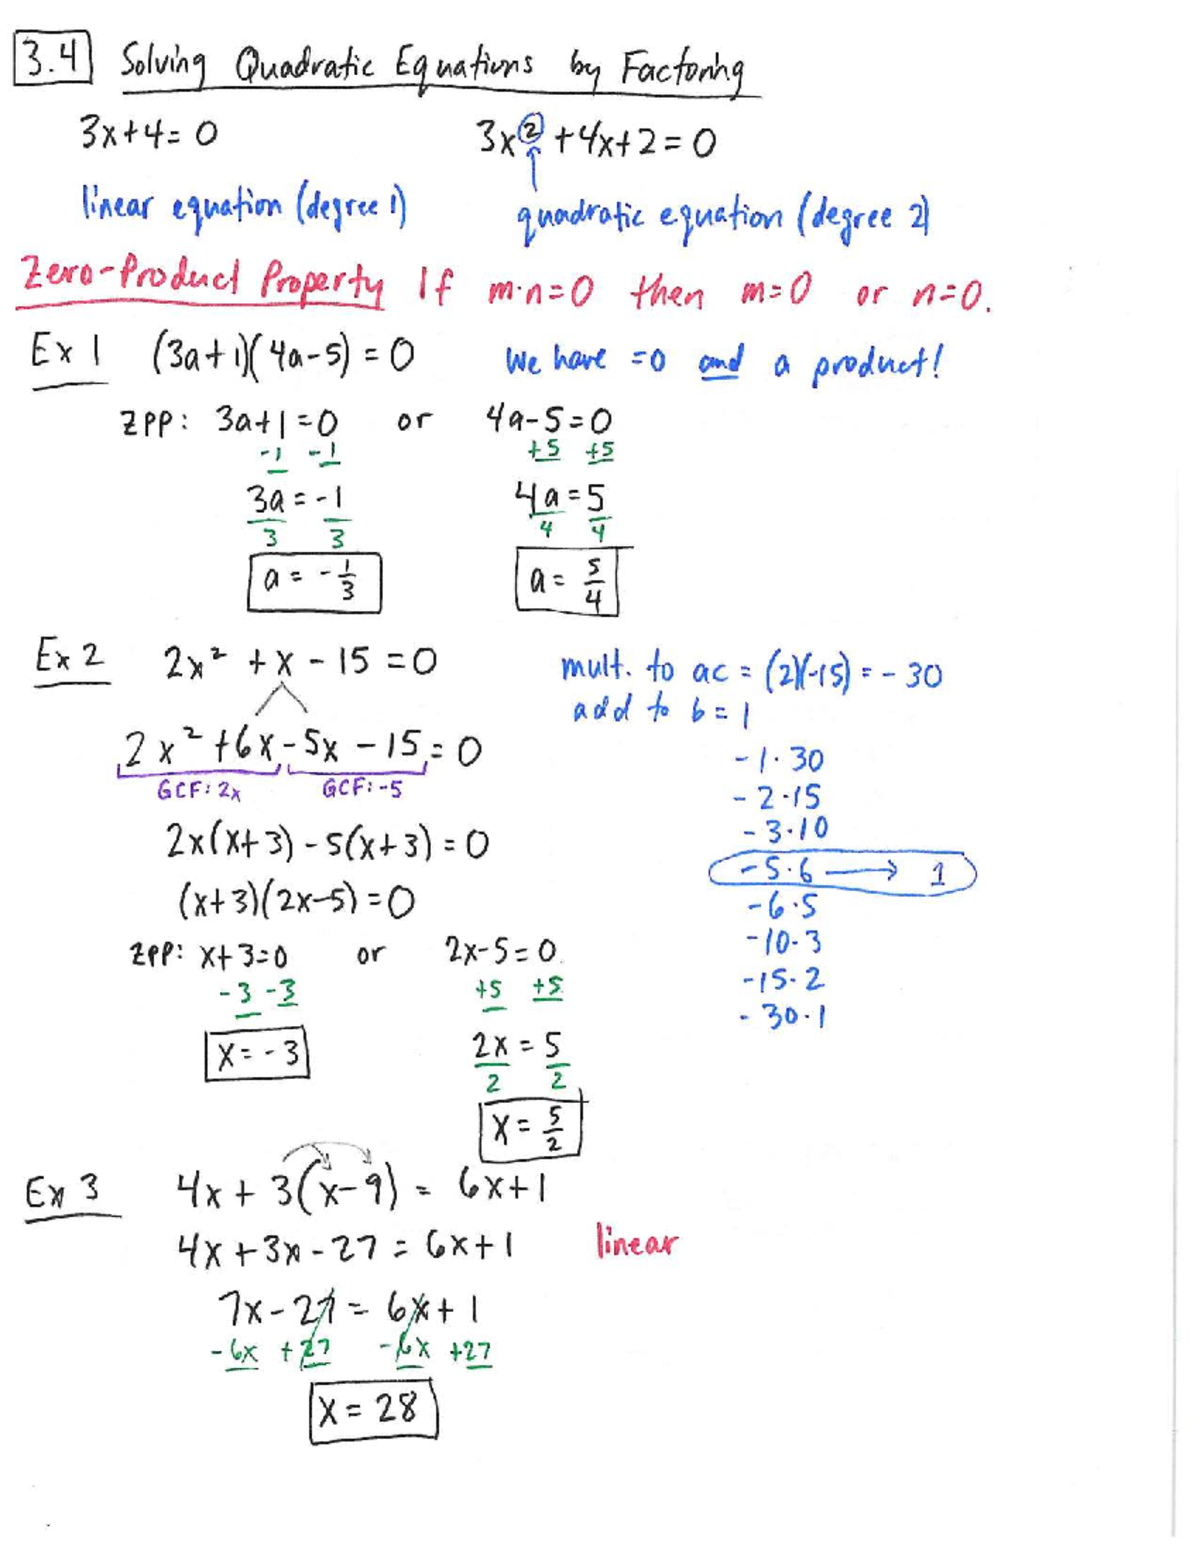 3.4 Solving Quadratic Equations by Factoring
3x+4=0 3x²+4x+2=0
linear equation (degree 1) quadratic equation (degree 2)
Zero-Product Property If m·n=0 then m=0 or n=0.
Ex 1 (3a+1)(4a-5)=0 We have =0 and a product!
ZPP: 3a+1=0 or 4a-5=0
-1 -1 +5 +5
3a=-1 4a=5
3 3 4 4
a=-1/3 a=5/4
Ex 2 2x²+x-15=0 mult. to ac=(2)(-15)=-30
add to b=1
2x²+6x-5x-15=0 -1·30
GCF:2x GCF:-5 -2·15
2x(x+3)-5(x+3)=0 -3·10
-5·6 → 1
(x+3)(2x-5)=0 -6·5
ZPP: x+3=0 or 2x-5=0 -10·3
-3 -3 +5 +5 -15·2
-30·1
x=-3 2x=5
2 2
x=5/2
Ex 3 4x+3(x-9)=6x+1
4x+3x-27=6x+1 linear
7x-27=6x+1
-6x +27 -6x +27
x=28